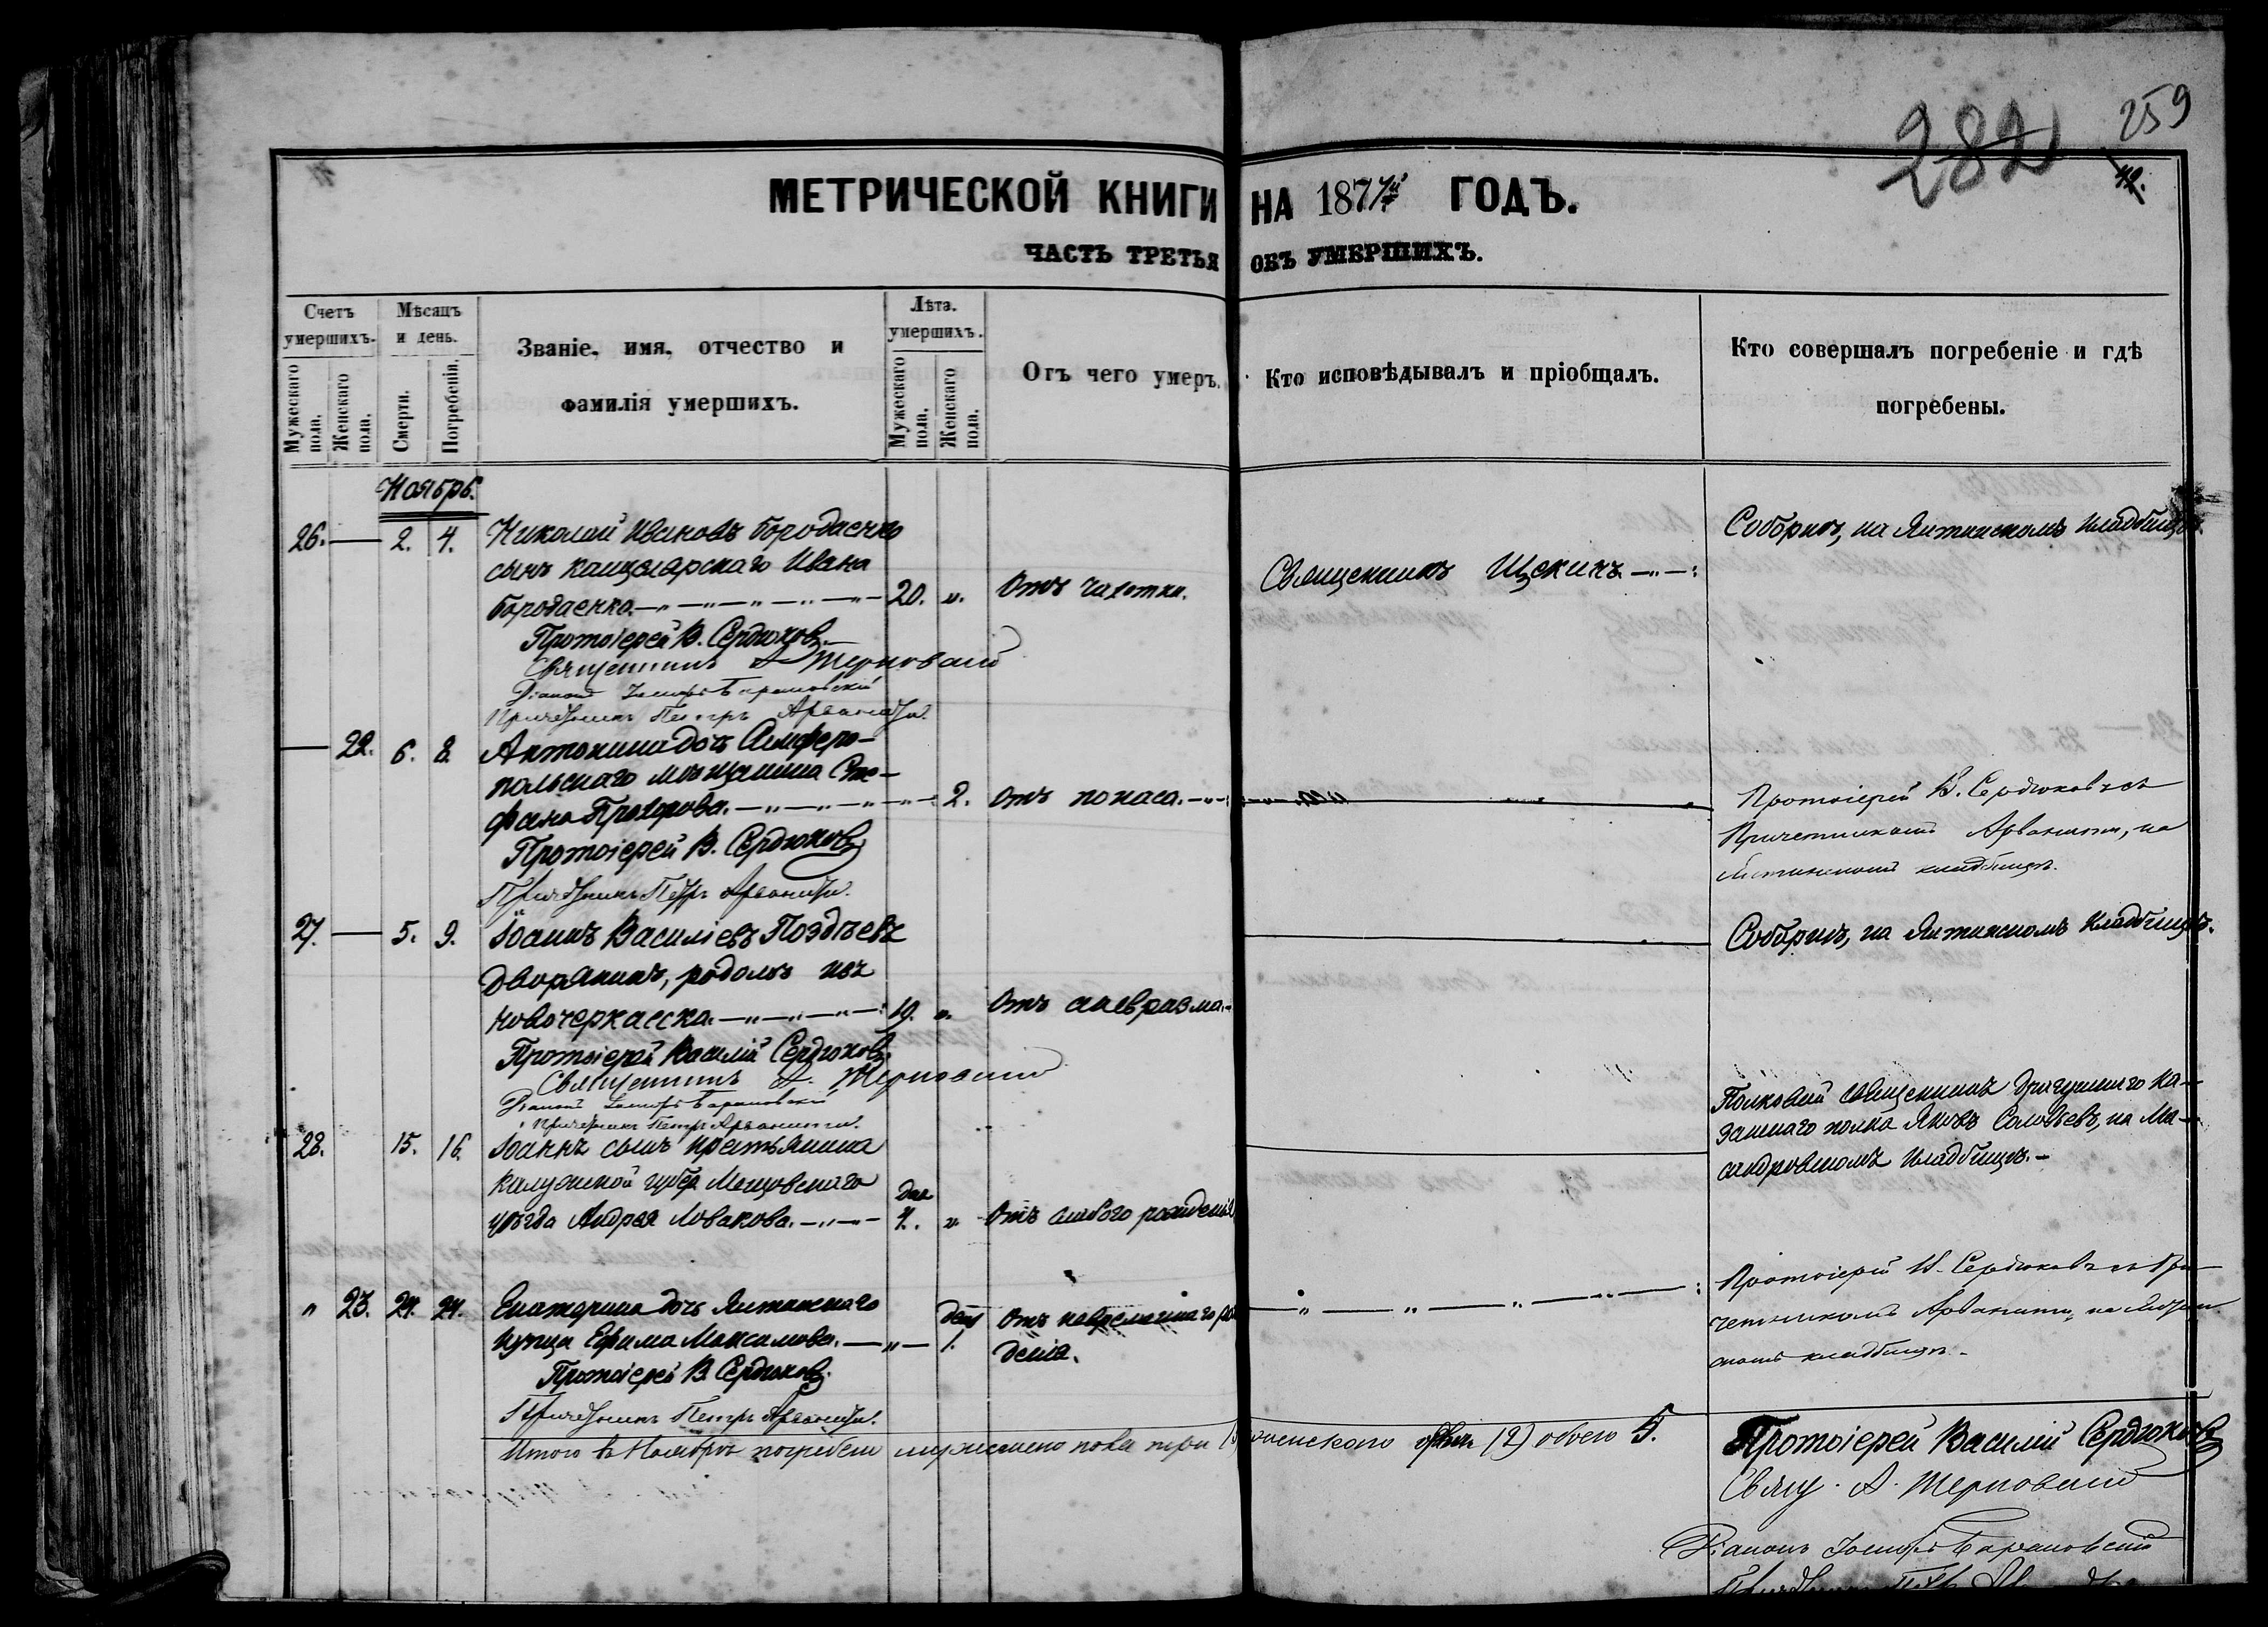 259
282
42.
МЕТРИЧЕСКОЙ КНИГИ НА 187 ГОДЪ.
ЧАСТЬ ТРЕТЬЯ ОБЪ УМЕРШИХЪ.
Счетъ умершихъ.
Мѣсяцъ и день.
Званіе, имя, отчество и фамилія умершихъ.
Лѣта умершихъ.
Отъ чего умеръ.
Кто исповѣдывалъ и пріобщалъ.
Кто совершалъ погребеніе и гдѣ погребены.
Мужескаго пола.
Женскаго пола.
Смерти.
Погребенія.
Мужескаго пола.
Женскаго пола.
Ноябрь.
26. — 2. 4. Николай Ивановъ Бородаенко
Соборнѣ, на Ялтинскомъ кладбищѣ.
сынъ канцелярскаго Ивана
Бородаенко. 20. „. Отъ чахотки. Священникъ Щекинъ
Протоіерей В. Сердюковъ
Священникъ А Терновскій
Діаконъ Іосифъ Барановскій
Причетникъ Петръ Арванити.
— 22. 6. 8. Антонина дочь Симферо-
польскаго мѣщанина Сте-
фана Прохорова. 2. Отъ поноса.
Протоіерей В. Сердюковъ съ
Причетникомъ Арванити, на
Ялтинскомъ кладбищѣ.
Протоіерей В. Сердюковъ
Причетникъ Петръ Арванити.
27. — 5. 9. Іоаннъ Василіевъ Поздѣевъ
Соборнѣ, на Ялтинскомъ кладбищѣ.
дворянинъ, родомъ изъ
Новочеркасска. 19. „. Отъ аневризма.
Протоіерей Василій Сердюковъ
Священникъ А. Терновскій
Діаконъ Іосифъ Барановскій
Причетникъ Петръ Арванити.
28. 15. 16. Іоаннъ сынъ крестьянина
Калужской губер Мещовскаго
дня
уѣзда Андрея Новакова. „ Отъ слабого рожденія
Полковый священникъ
полка Яковъ Соловьевъ, на Ма-
сандровскомъ кладбищѣ.-
" 23. 24. 24. Екатерина дочь Ялтинскаго
день Отъ
купца Ефима Максимова. 1. денія.
Протоіерей В. Сердюковъ съ При-
четникомъ Арванити, на Ялтин
скомъ кладбищѣ.
Протоіерей В. Сердюковъ.
Причетникъ Петръ Арванити.
Итого въ Ноябрѣ погребено мужескаго пола три женскаго (2) обоего 5.
Протоіерей Василій Сердюковъ
Свящ. А. Терновскій
Діаконъ Іосифъ Барановскій